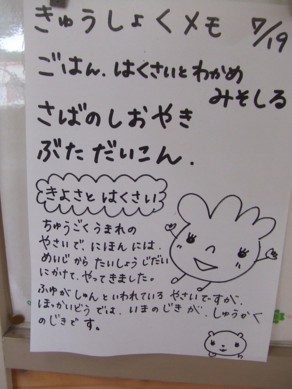 きゅうしょくメモ 7/19
ごはん、はくさいとわかめ
みそしる
さばのしおやき
ぶただいこん、
きよさと はくさい
ちゅうごくうまれの
やさいで、にほんには、
めいじから たいしょうじだい
にかけて、やってきました。
ふゆがしゅんといわれている やさいですが、
ほっかいどうでは、いまのじきが、しゅうかく
のじきです。